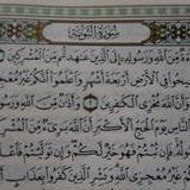 سُورَةُ التَّوْبَةِ
ءَةٌ مِّنَ اللَّهِ وَرَسُولِهِ إِلَى الَّذِينَ عَٰهَدتُّم مِّنَ الْمُشْرِكِينَ
سِيحُوا فِي الْأَرْضِ أَرْبَعَةَ أَشْهُرٍ وَاعْلَمُوا أَنَّكُمْ غَيْرُ مُعْجِزِي
وَأَنَّ اللَّهَ مُخْزِي الْكَٰفِرِينَ ٢ وَأَذَٰنٌ مِّنَ اللَّهِ وَرَسُو
النَّاسِ يَوْمَ الْحَجِّ الْأَكْبَرِ أَنَّ اللَّهَ بَرِيءٌ مِّنَ الْمُشْرِ
فَإِن تُبْتُمْ فَهُوَ خَيْرٌ لَّكُمْ وَإِن تَوَلَّيْتُمْ فَاعْلَمُوا
غَيْرُ مُعْجِزِي اللَّهِ وَبَشِّرِ الَّذِينَ كَفَرُوا بِعَذَابٍ